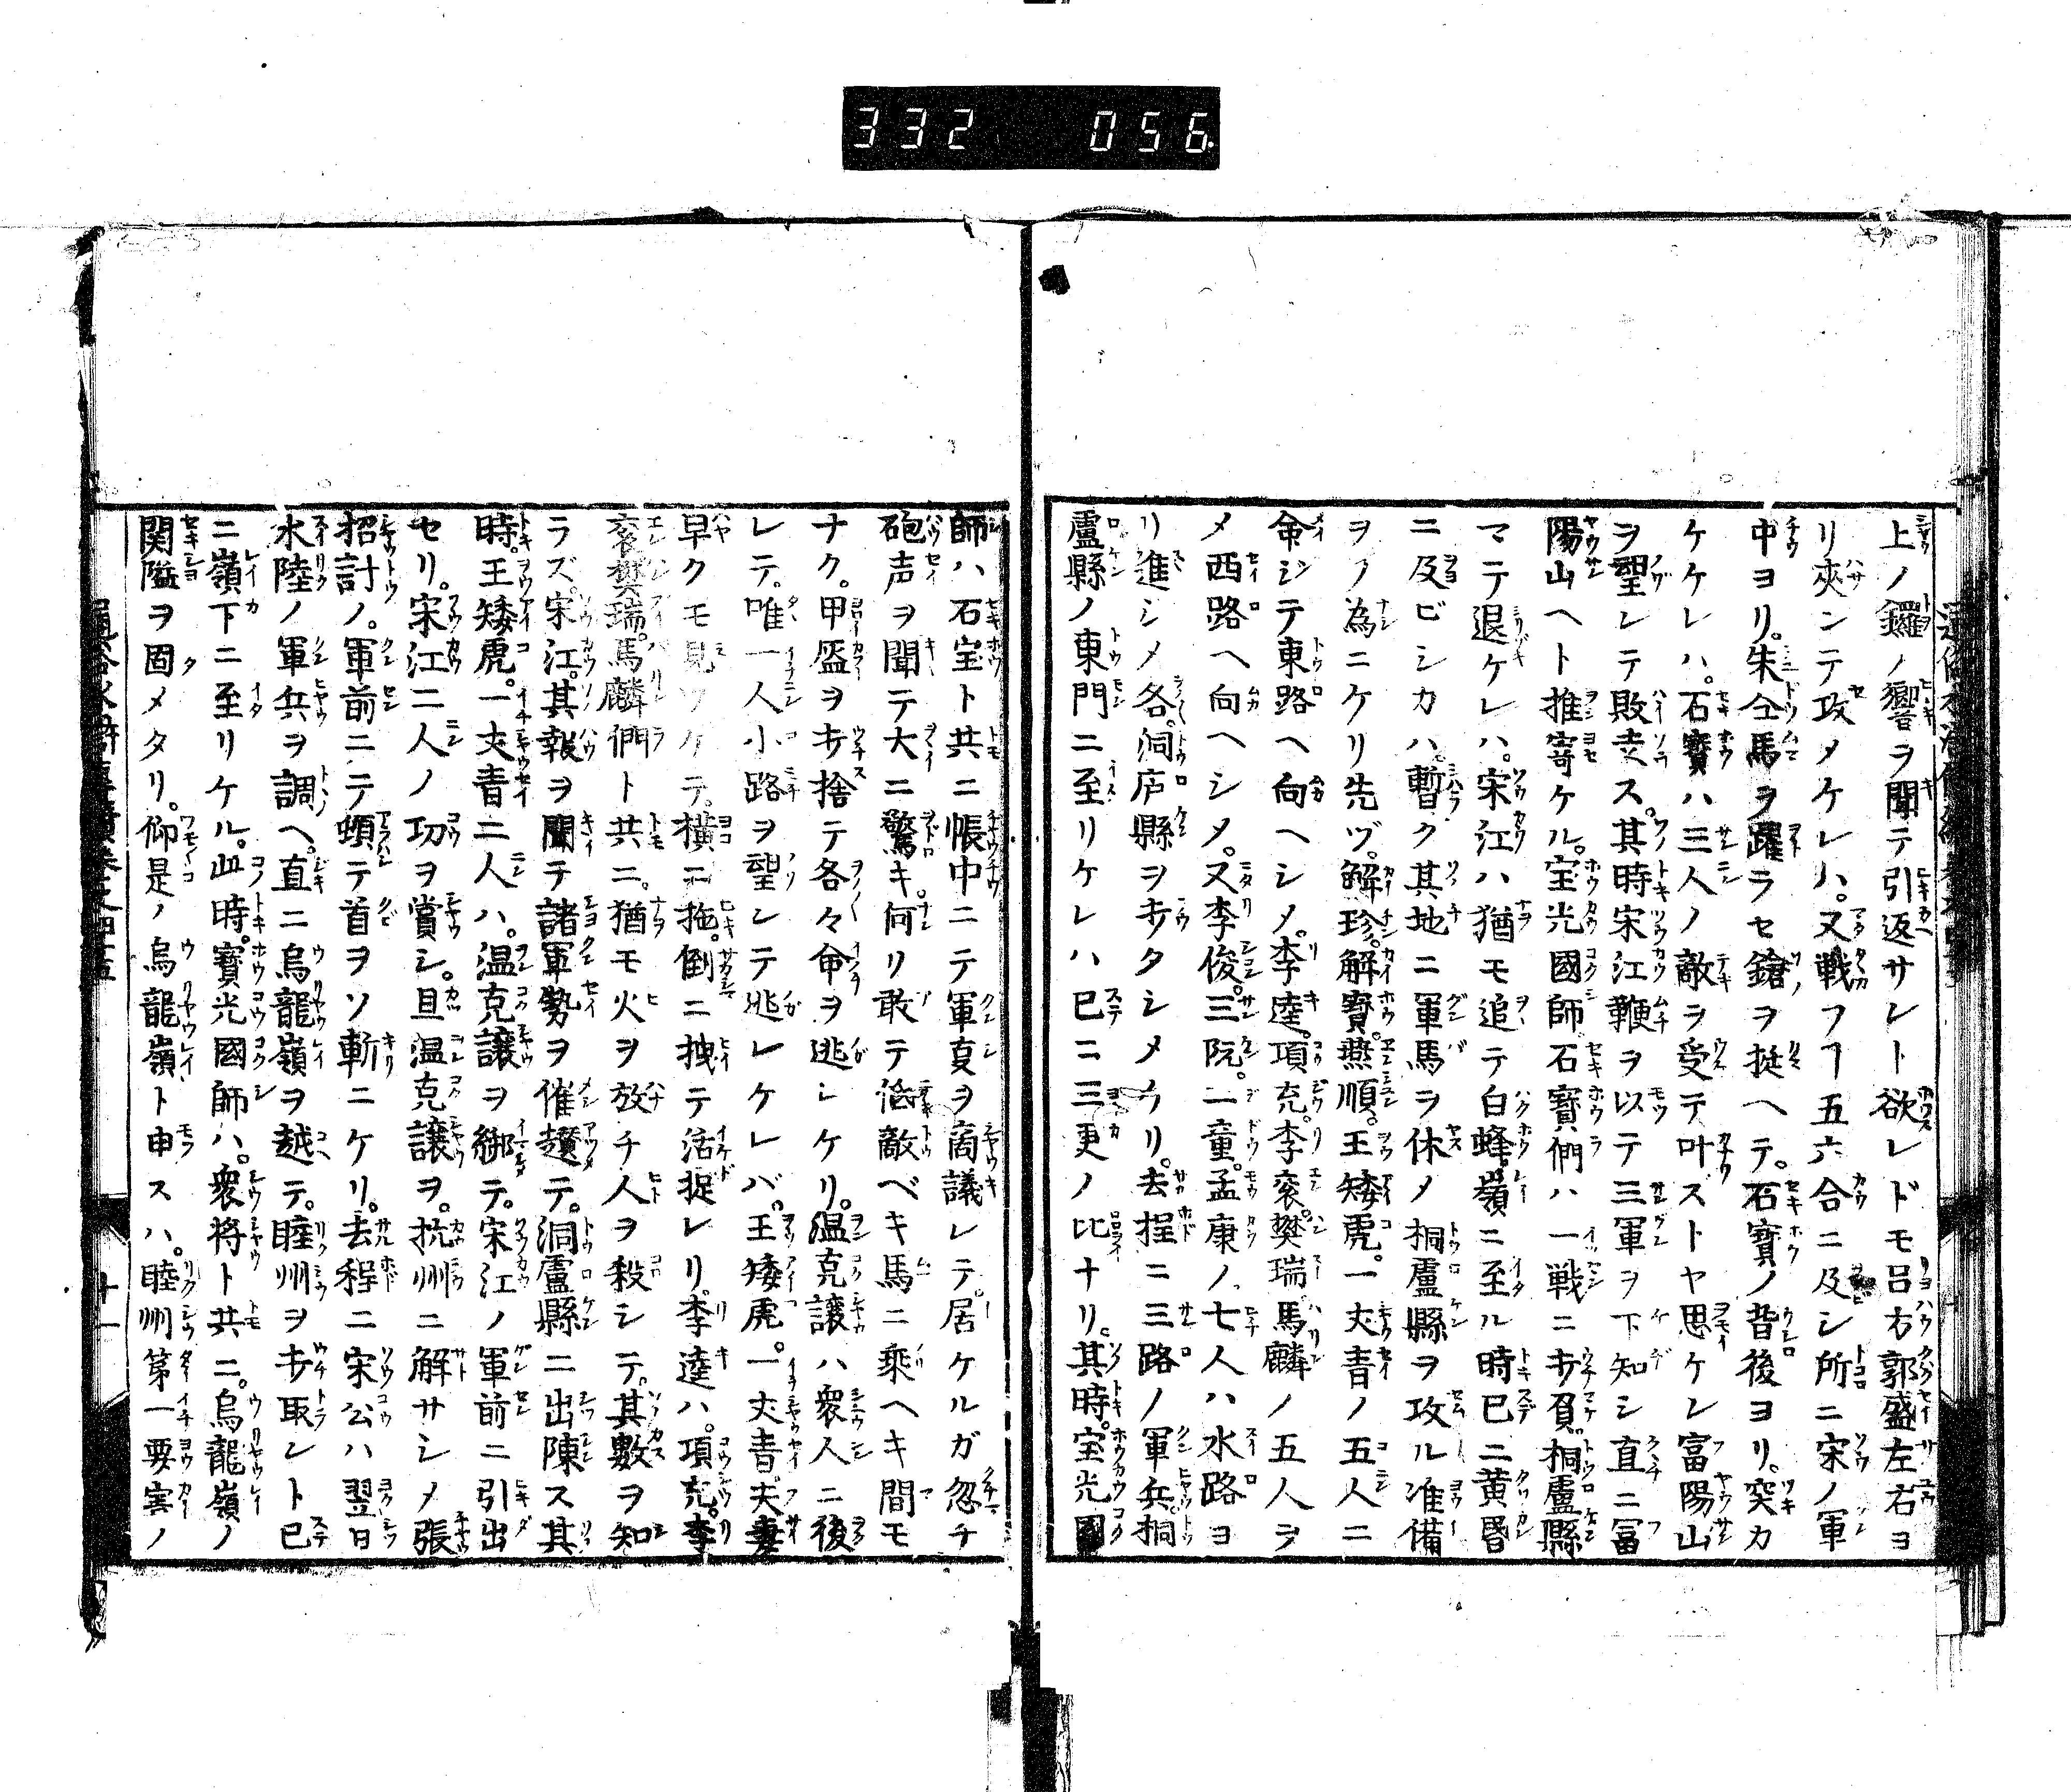 332 056
上ノ鑼ノ響ヲ聞テ引返サレト欲レドモ呂方郭盛左右ヨ
リ夾ンテ攻メケレハ。又戦フヿ五六合ニ及シ所ニ宋ノ軍
中ヨリ。朱仝馬ヲ躍ラセ鎗ヲ挺ヘテ。石寶ノ背後ヨリ。突カ
ケケレハ。石寶ハ三人ノ敵ヲ受テ叶ストヤ思ケレ富陽山
ヲ望レテ敗走ス。其時宋江鞭ヲ以テ三軍ヲ下知シ直ニ冨
陽山ヘト推寄ケル。宝光國師石寶們ハ一戦ニ𢪸負。桐盧縣
マテ退ケレハ。宋江ハ猶モ追テ白蜂嶺ニ至ル時已ニ黄昏
ニ及ビシカハ。暫ク其地ニ軍馬ヲ休メ桐盧縣ヲ攻ル准備
ヲソ為ニケリ先ヅ。解珍。解寶。燕順。王矮虎。一丈青ノ五人ニ
命シテ東路ヘ向ヘシメ。李逵。項充。李衮。樊瑞馬麟ノ五人ヲ
メ西路ヘ向ヘシメ。又李俊。三阮。二童。孟康ノ七人ハ水路ヨ
リ進シメ各。洞庐縣ヲ𢪸タシメケリ。去程ニ三路ノ軍兵。桐
盧縣ノ東門ニ至リケレハ已ニ三更ノ比ナリ。其時。宝光國
師ハ石宝ト共ニ帳中ニテ軍夏ヲ商議レテ居ケルガ忽チ
砲声ヲ聞テ大ニ驚キ。何リ敢テ恰敵ベキ馬ニ乘ヘキ間モ
ナク。甲盔ヲ𢪸捨テ各々命ヲ逃レケリ。温克譲ハ衆人ニ後
レテ。唯一人小路ヲ望レテ逃レケレバ。王矮虎。一丈青夫妻
早クモ見ツケテ。横ニ拖。倒ニ拽テ活捉レリ。李逵ハ。項充。李
衮樊瑞。馬麟們ト共ニ。猶モ火ヲ放チ人ヲ殺シテ。其數ヲ知
ラズ。宋江。其報ヲ聞テ諸軍勢ヲ催趲テ。洞盧縣ニ出陳ス其
時。王矮虎。一丈青二人ハ。温克譲ヲ綁テ。宋江ノ軍前ニ引出
セリ。宋江二人ノ功ヲ賞シ。且温克譲ヲ。抗州ニ解サシメ張
招討ノ。軍前ニテ顕テ首ヲソ斬ニケリ。去程ニ宋公ハ翌日
水陸ノ軍兵ヲ調ヘ。直ニ烏龍嶺ヲ越テ。睦州ヲ𢪸取レト已
ニ嶺下ニ至リケル。此時。寶光國師ハ。衆将ト共ニ。烏龍嶺ノ
関隘ヲ固メタリ。仰是ノ烏龍嶺ト申スハ。睦州第一要害ノ
十一